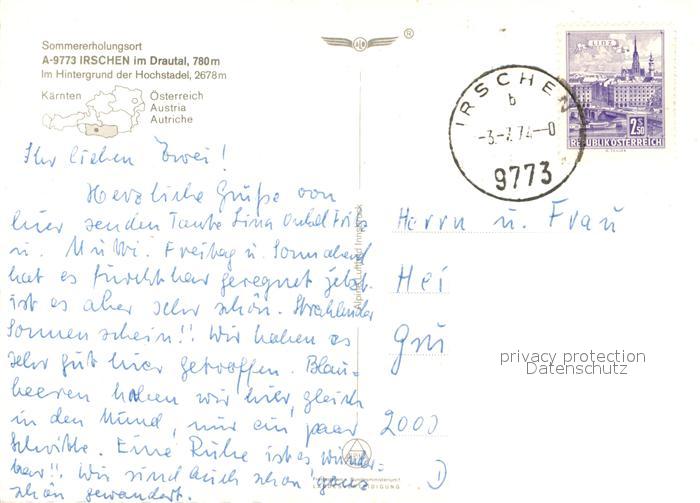 Sommererholungsort
A-9773 IRSCHEN im Drautal, 780m
Im Hintergrund der Hochstadel, 2678m
Kärnten
Österreich
Austria
Autriche
®
IRSCHEN
b
-3.-7.74-0
9773
LINZ
2S50
REPUBLIK ÖSTERREICH
Ihr lieben Zwei!
Herzliche Grüße von
hier senden Tante Lina Onkel Fritz
u. Mutti. Freitag u. Sonnabend
hat es furchtbar geregnet jetzt
ist es aber sehr schön. Strahlender
Sonnenschein!! Wir haben es
sehr gut hier getroffen. Blau=
beeren haben wir hier, gleich
in den Mund, nur ein paar
Schritte. Eine Ruhe ist es wunder=
bar!! Wir sind auch schon ganz
schön gewandert.
Alpine Luftbild Innsbruck
Herrn u. Frau
Hei
Grü
privacy protection
Datenschutz
2000
D